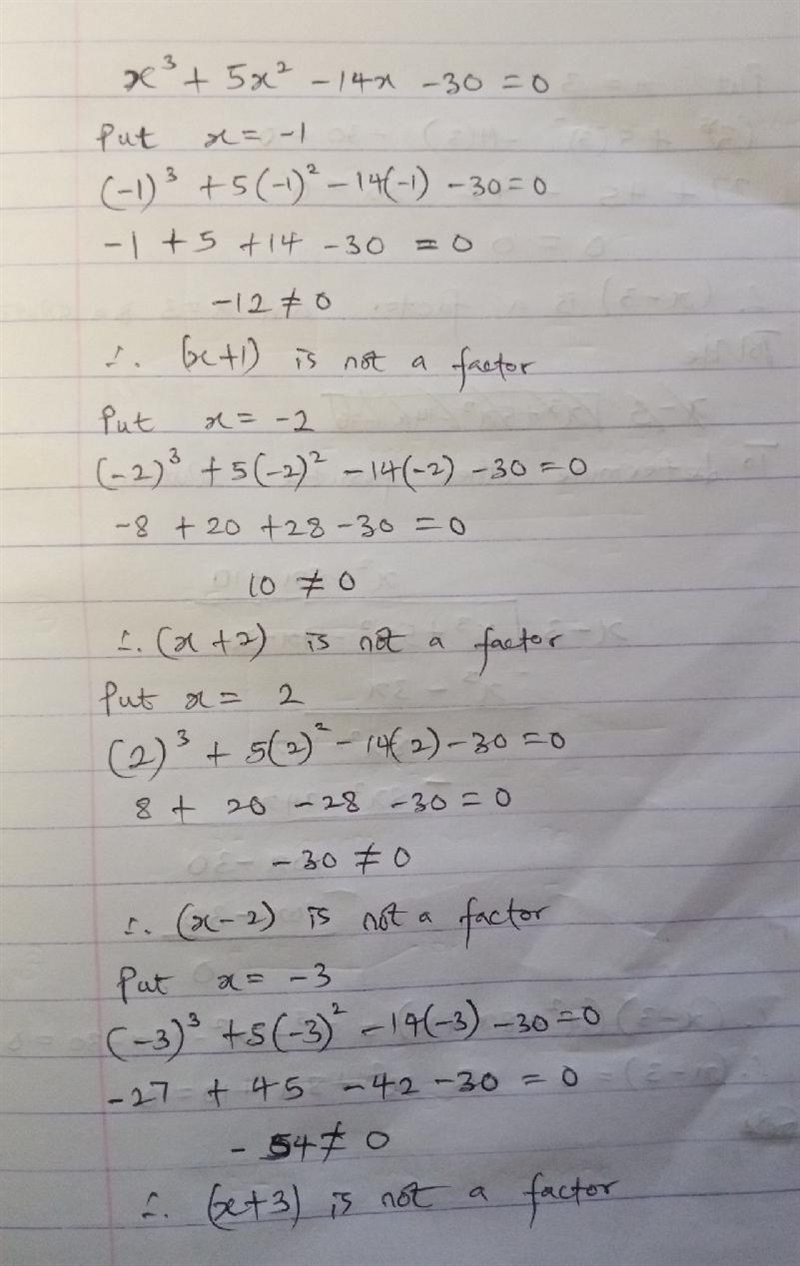 x³ + 5x² - 14x - 30 = 0
Put x = -1
(-1)³ + 5(-1)² - 14(-1) - 30 = 0
-1 + 5 + 14 - 30 = 0
-12 ≠ 0
∴ (x+1) is not a factor
Put x = -2
(-2)³ + 5(-2)² - 14(-2) - 30 = 0
-8 + 20 + 28 - 30 = 0
10 ≠ 0
∴ (x + 2) is not a factor
Put x = 2
(2)³ + 5(2)² - 14(2) - 30 = 0
8 + 20 - 28 - 30 = 0
-30 ≠ 0
∴ (x - 2) is not a factor
Put x = -3
(-3)³ + 5(-3)² - 14(-3) - 30 = 0
-27 + 45 - 42 - 30 = 0
- 54 ≠ 0
∴ (x+3) is not a factor